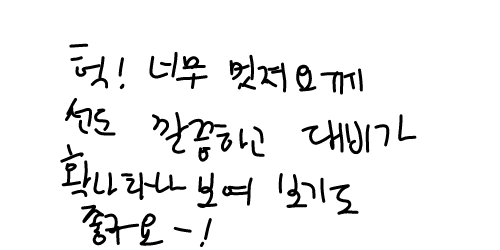 헉! 너무 멋져요 ㄲㅔ
선도 깔끔하고 대비가
확 나타나 보여 보기도
좋구요~!